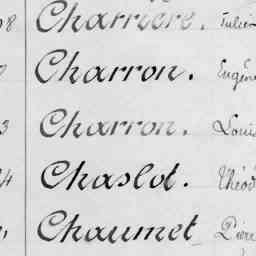 8 Charrière. Julien
Charron. Eugène
3 Charron. Louis
4 Chaslot. Théod
Chaumet Pierre